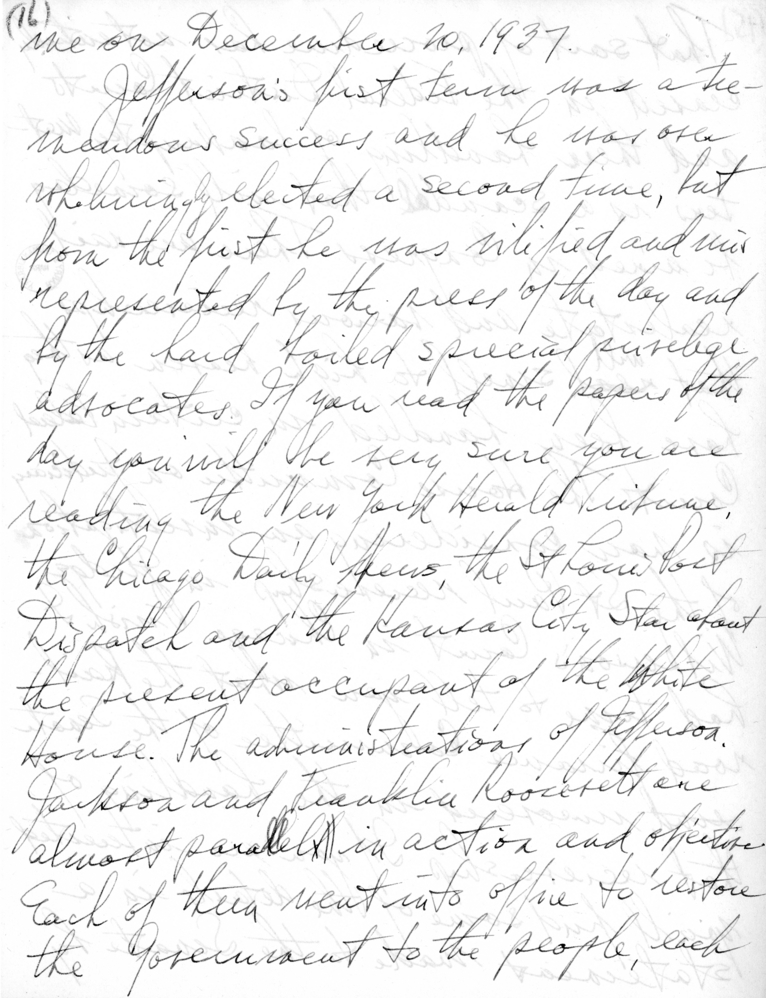 (16)
me on December 20, 1937.
Jefferson's first term was a tre-
mendous success and he was over
whelmingly elected a second time, but
from the first he was vilified and mis
represented by the press of the day and
by the hard boiled special privelege
advocates. If you read the papers of the
day you will be very sure you are
reading the New York Herald Tribune,
the Chicago Daily News, the St Louis Post
Dispatch and the Kansas City Star about
the present occupant of the White
House. The administrations of Jefferson,
Jackson and Franklin Roosevelt are
almost parallel in action and objective
Each of them went into office to restore
the Government to the people, each